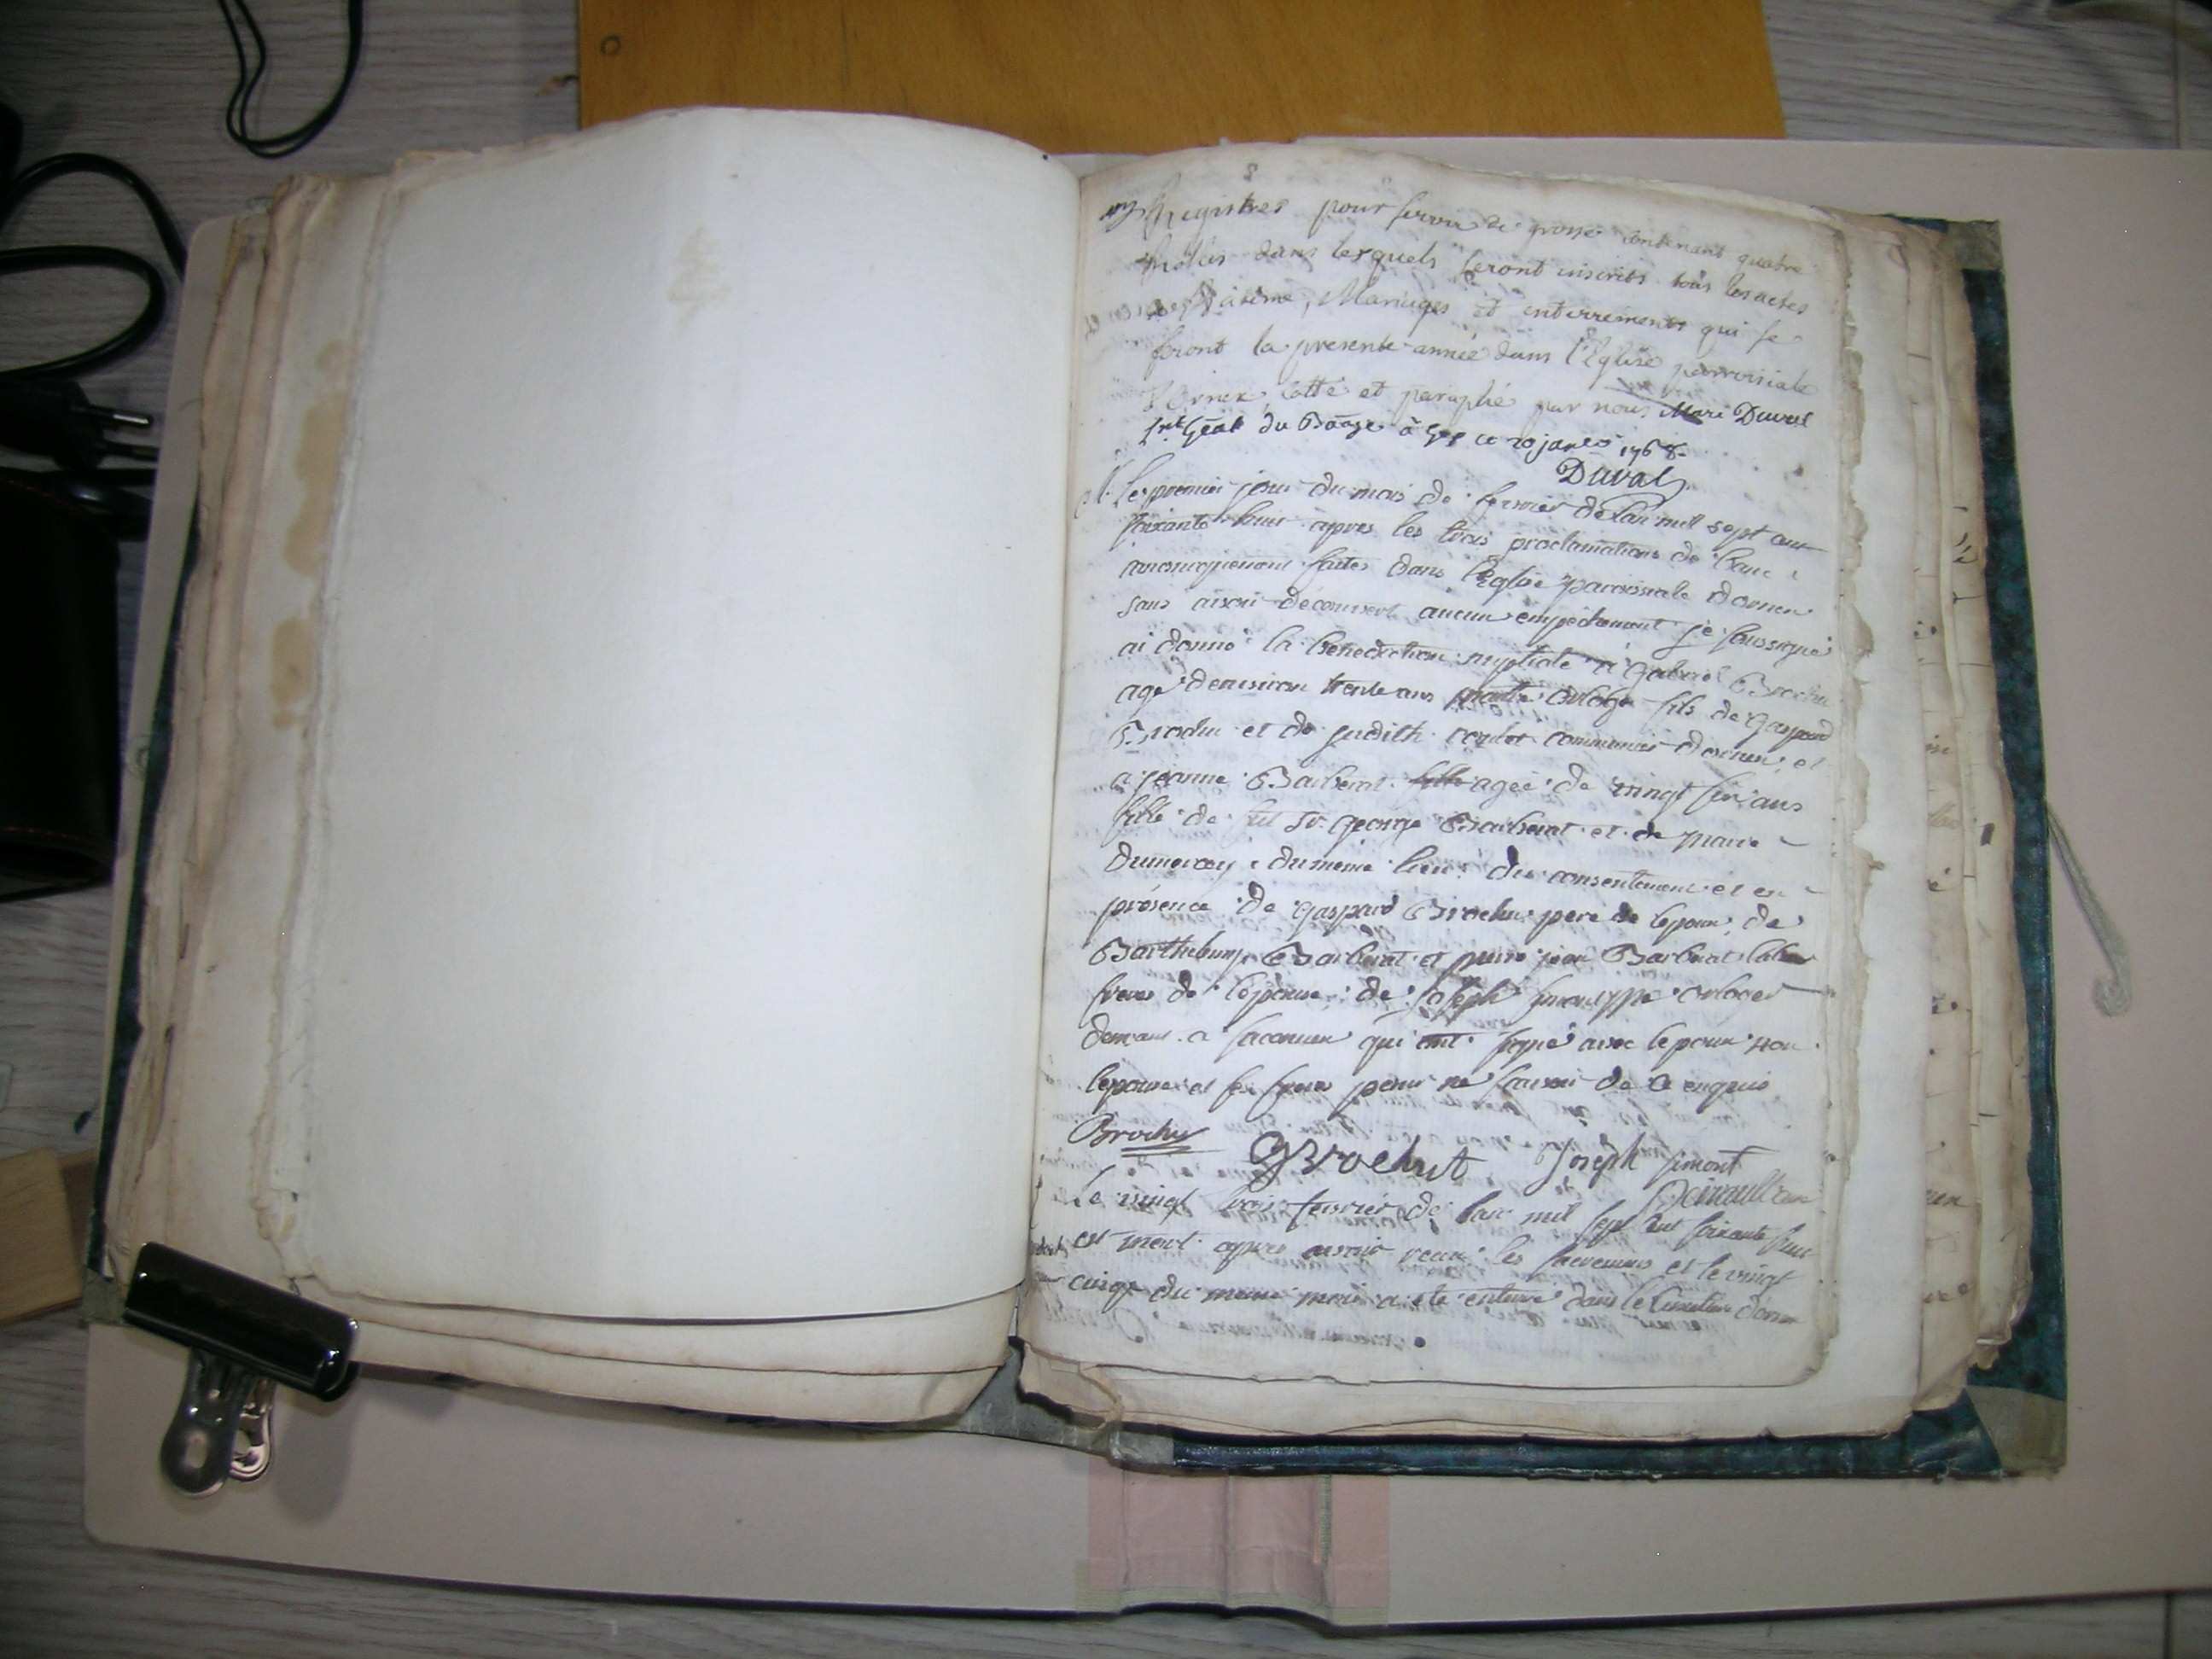 Registres pour servir de grosse contenant quatre
rolles dans lesquels seront inscrits tous les actes
de Batême, Mariages et enterrements qui se
feront la presente année dans l'Eglise parroissiale
d'Ornex, cotté et paraphé par nous Duval
Duval
Le premier jour du mois de fevrier de l'an mil sept cent
soixante huit apres les trois proclamations de banc
faites dans l'Eglise parroissiale dornex
sans avoir découvert aucun empéchement je soussigné
ai donné la benediction nuptiale a Gabriel Brochu
agé denviron trente ans fils de Gaspard
Brochu et de Judith dornex et
a jeanne Barberat agée de vingt six ans
fille de feu Sr. George Barberat et de Marie
du meme lieu du consentement et en
présence de Gaspard Brochu pere de lepoux, de
Barthelemy Barberat et pierre jean Barberat
freres de l'épouse de Joseph orloger
a saconnex qui ont signé avec lepoux non
lepouse et ses freres pour ne savoir de ce enquis
Brochu GBrochut Joseph simont
Le vingt trois fevrier de lan mil sept cent soixante huit
est mort apres avoir recu les sacremens et le vingt
cinq du meme mois a ete enterré dans le Cimetiere dornex